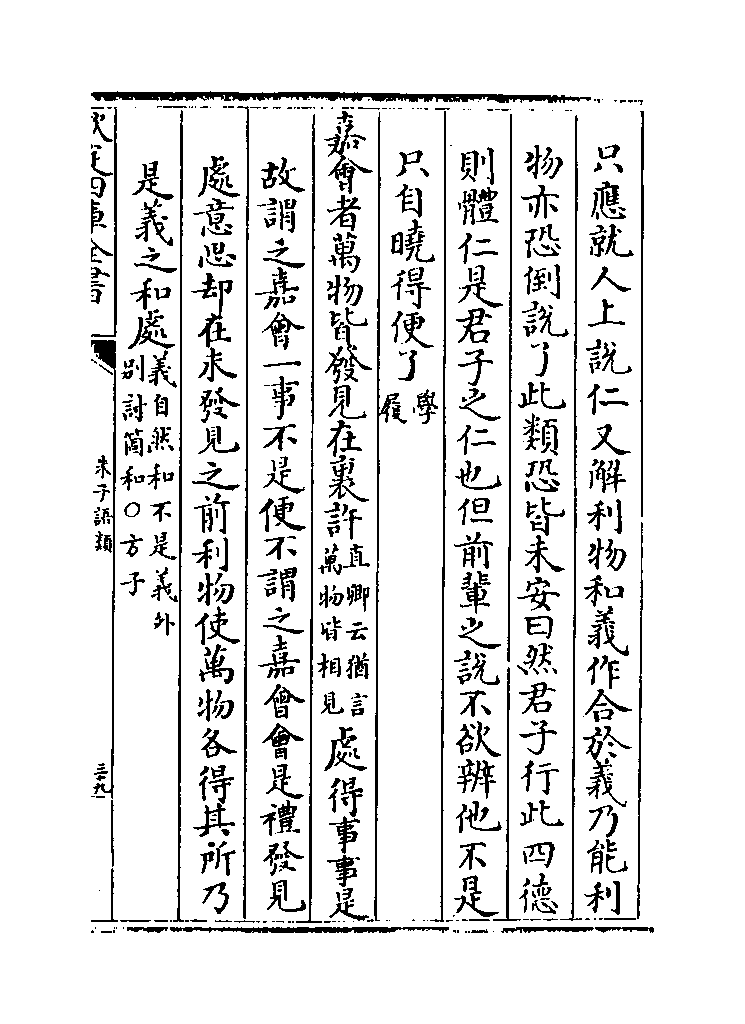 只應就人上說仁又解利物和義作合於義乃能利
物亦恐倒說了此類恐皆未安曰然君子行此四德
則體仁是君子之仁也但前輩之說不欲辨他不是
只自曉得便了學履
嘉會者萬物皆發見在裏許直卿云猶言萬物皆相見處得事事是
故謂之嘉會一事不是便不謂之嘉會會是禮發見
處意思却在未發見之前利物使萬物各得其所乃
是義之和處義自然和不是義外別討箇和○方子
欽定四庫全書
朱子語類